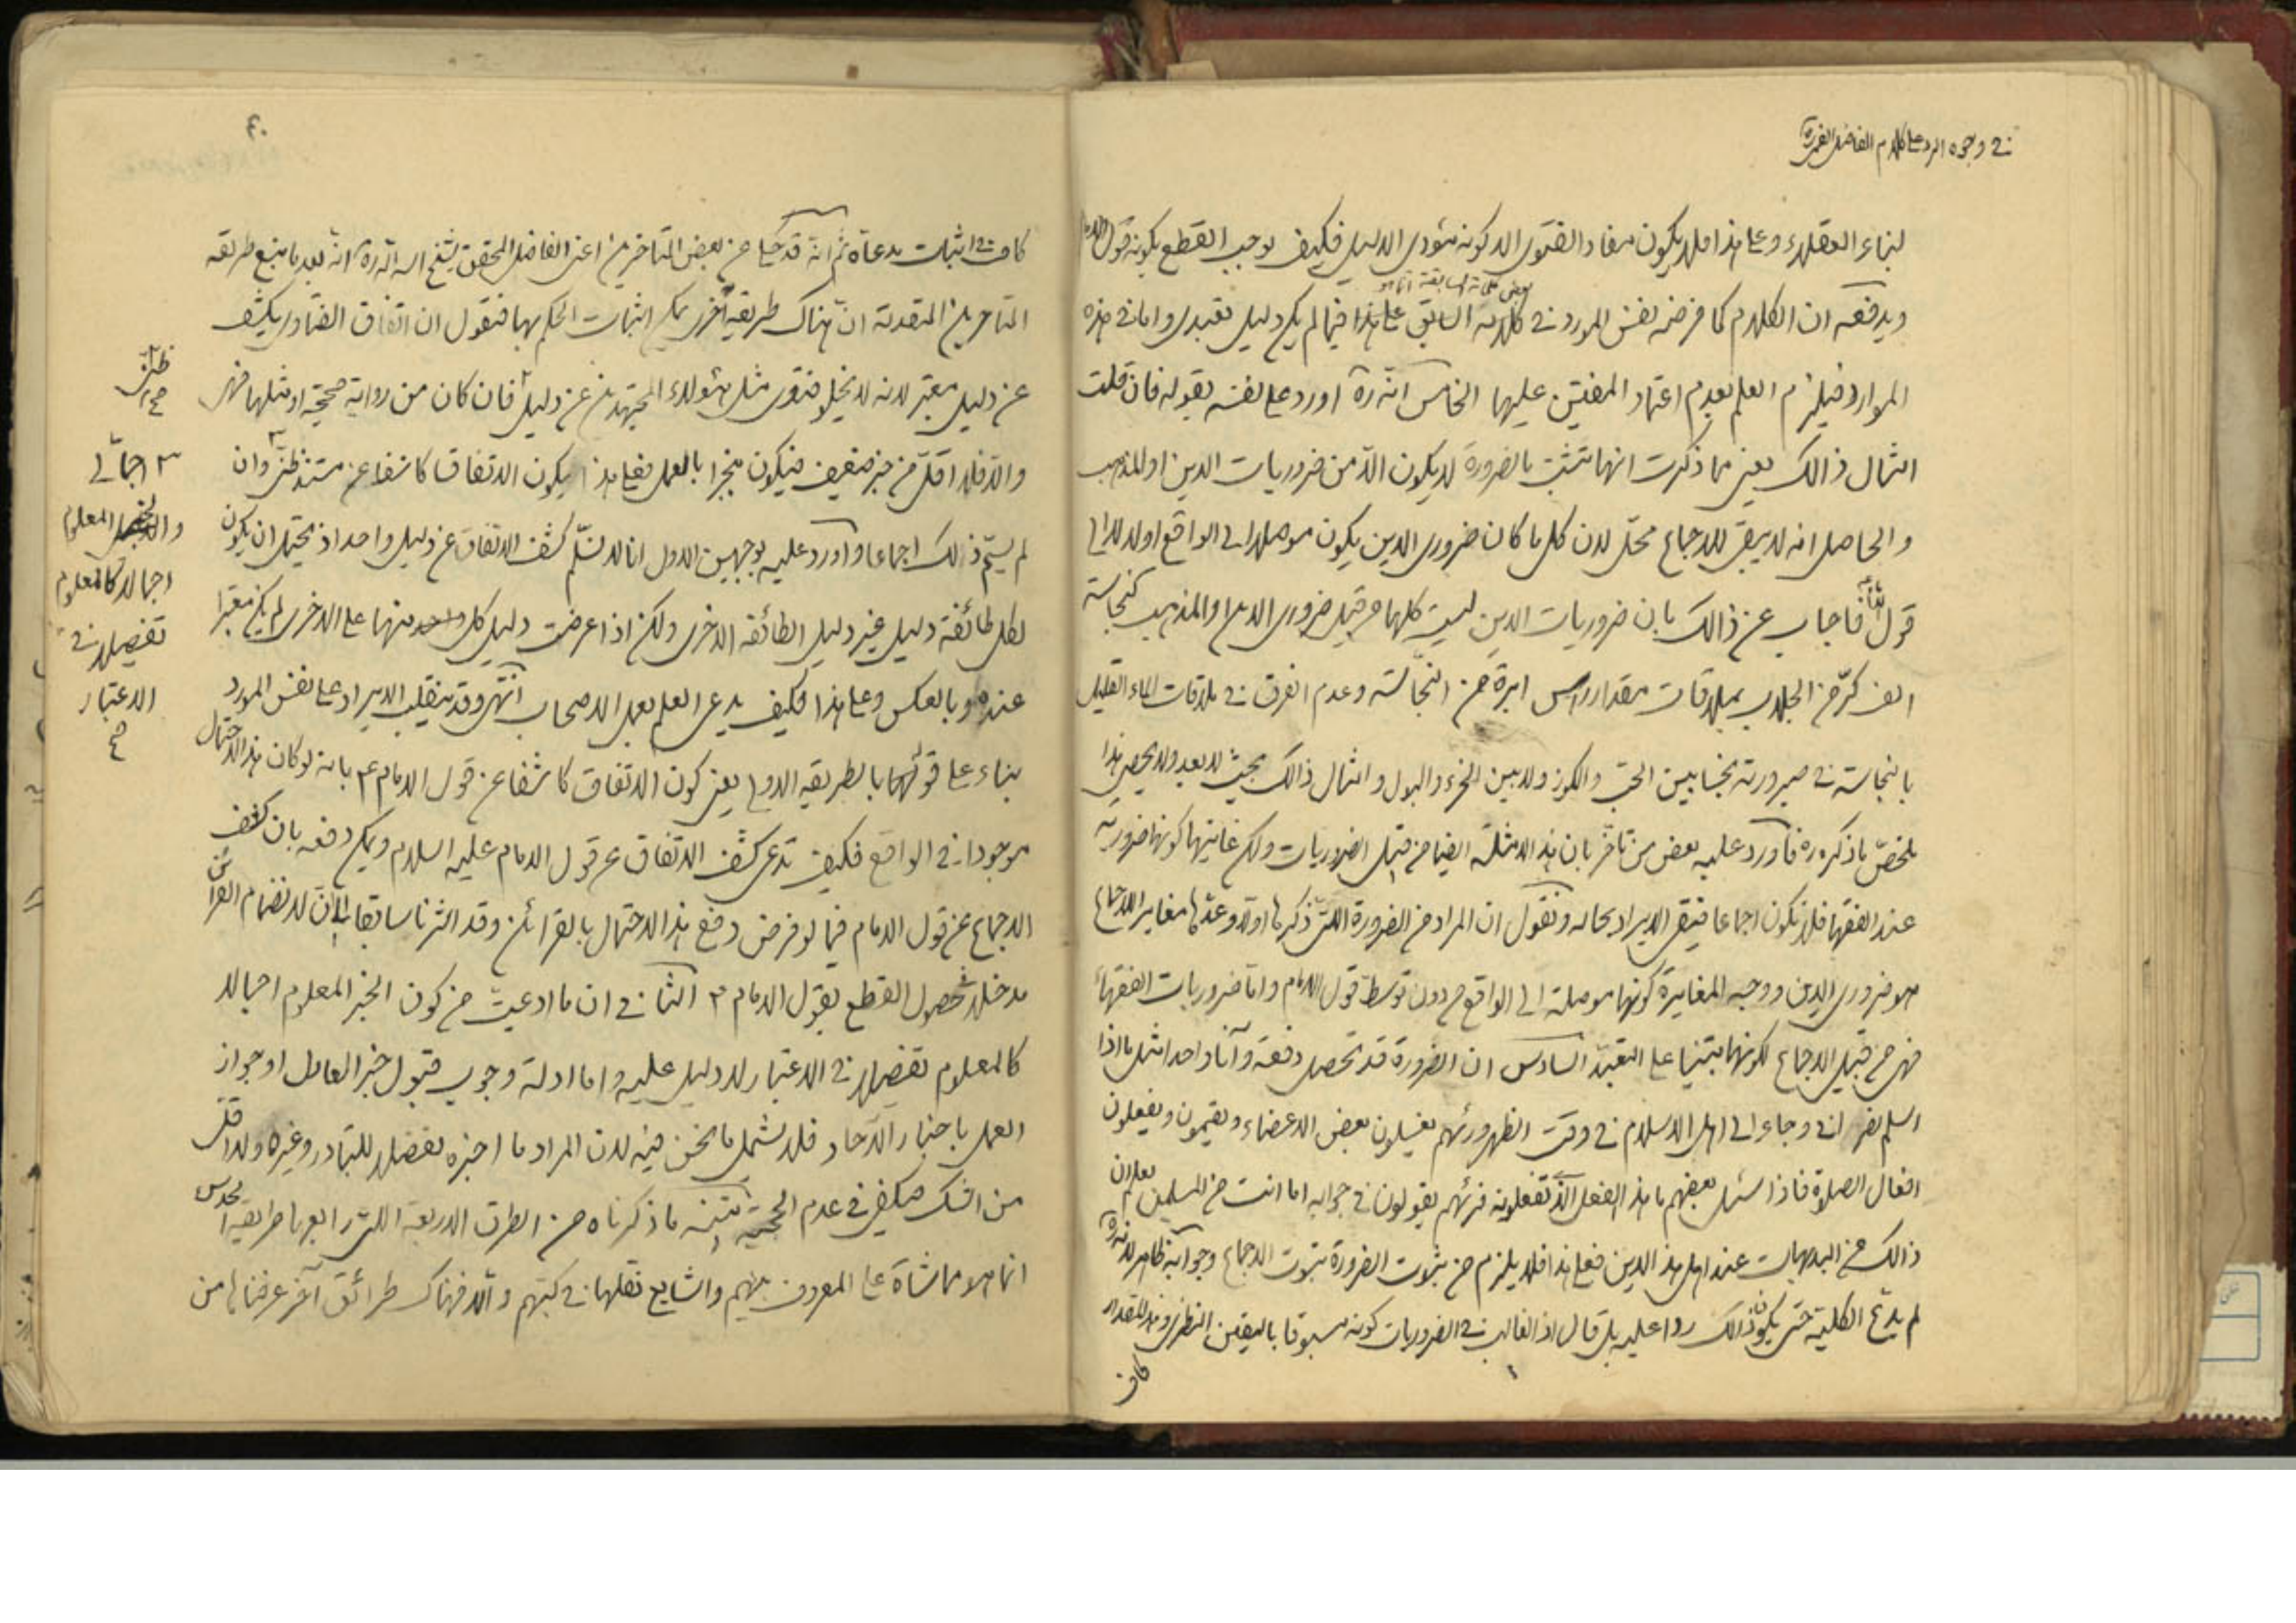 في وجوه الرد على كلام الفاضل القمي ره
لبناء العقلاء وعلى هذا فلا يكون مفاد الفتوى الا كونه مؤدى الدليل فكيف يوجب القطع بكونه قول الامام
ويدفعه ان الكلام كما فرضه نفس المورد في كلامه السابق على هذا فيما لم يكن دليل تعبدي واما في هذه
الموارد فيلزم العلم بعدم اعتماد المفتين عليها الخامس انه ره اورد على نفسه بقوله فان قلت
امثال ذالك يعني مما ذكرت انها تثبت بالضرورة لا يكون الا من ضروريات الدين او المذهب
والحاصل انه لا يبقى للاجماع محل لان كل ما كان ضروري الدين يكون موصلا الى الواقع اولا لا الى
قول فاجاب عن ذالك بان ضروريات الدين ليست كلها من قبيل ضروري الدين والمذهب كنجاسة
الف كر من الجلاب بملاقات مقدار راس ابرة من النجاسة وعدم الفرق في ملاقات الماء القليل
بالنجاسة في صيرورته نجسا بين الحب والكوز ولا بين الخرء والبول وامثال ذالك بحيث لا يعد ولا يحصى هذا
ملخص ما ذكره ره فاورد عليه بعض من تاخر بان هذه الامثلة ايضا من قبيل الضروريات ولكن غايتها كونها ضرورية
عند الفقهاء فلا تكون اجماعا فيبقى الايراد بحاله ونقول ان المراد من الضرورة التي ذكرها اولا وعدها مغاير الاجماع
هو ضروري الدين ووجه المغايرة كونها موصلة الى الواقع من دون توسط قول الامام واما ضروريات الفقهاء
فهي من قبيل الاجماع لكونها مبتنيا على التعبد السادس ان الضرورة قد تحصل دفعة وآنا واحدا مثل ما اذا
اسلم نصراني وجاء الى اهل الاسلام في وقت الظهر ورئهم يغسلون بعض الاعضاء ويقيمون ويفعلون
افعال الصلوة فاذا سئل بعضهم ما هذا الفعل الذي تفعلونه فرئهم يقولون في جوابه اما انت من المسلمين يعلم ان
ذالك من البديهيات عند اهل هذا الدين فعلى هذا فلا يلزم من ثبوت الضرورة ثبوت الاجماع وجوابه ظاهر لانه ره
لم يدع الكلية حتى يكون ذالك ردا عليه بل قال اذ الغالب في الضروريات كونه مسبوقا باليقين النظري وهذا المقدار
كاف
٤٠
كاف في اثبات مدعاه ثم انه قد حكى عن بعض المتاخرين اعني الفاضل المحقق الشيخ اسد الله ره انه بعد ما منع طريقة
المتاخرين المتقدمة ان هناك طريقة اخرى يمكن اثبات الحكم بها فنقول ان اتفاق الفتاوى يكشف
عن دليل معتبر لانه لا يخلو فتوى مثل هؤلاء المجتهدين عن دليل فان كان من رواية صحيحة او مثلها فهو
والا فلا اقل من خبر ضعيف فيكون منجبرا بالعمل فعلى هذا يكون الاتفاق كاشفا عن مستند ظني وان
لم يسم ذالك اجماعا واورد عليه بوجهين الاول انا لا نسلم كشف الاتفاق عن دليل واحد اذ يحتمل ان يكون
لكل طائفة دليل غير دليل الطائفة الاخرى ولكن اذا عرضت دليل كل واحد منهما على الاخرى لم يكن معتبرا
عنده وبالعكس وعلى هذا فكيف يدعى العلم بعمل الاصحاب انتهى وقد ينقلب الايراد على نفس المورد
بناء على قولهما بالطريقة الاولى يعني كون الاتفاق كاشفا عن قول الامام ع بانه لو كان هذا الاحتمال
موجودا في الواقع فكيف تدعى كشف الاتفاق عن قول الامام عليه السلام ويمكن دفعه بان كشف
الاجماع عن قول الامام فيما لو فرض دفع هذا الاحتمال بالقرائن وقد اشرنا سابقا الى ان لانضمام القرائن
مدخلا في حصول القطع بقول الامام ع الثاني ان ما ادعيت من كون الخبر المعلوم اجمالا
كالمعلوم تفصيلا في الاعتبار لا دليل عليه واما ادلة وجوب قبول خبر العادل او جواز
العمل باخبار الآحاد فلا يشمل ما نحن فيه لان المراد ما اخبره تفصيلا للتبادر وغيره ولا اقل
من الشك فيكفي في عدم الحجية تنبيه ما ذكرناه من الطرق الاربعة التي رابعها طريقة الحدس
انما هو مماشاة على المعروف بينهم والشايع نقلها في كتبهم والا فهناك طرائق آخر عرضنا ها من
ظني
صح
٣ اجمالي
والمعلوم
اجمالا كالمعلوم
تفصيلا في
الاعتبار
صح